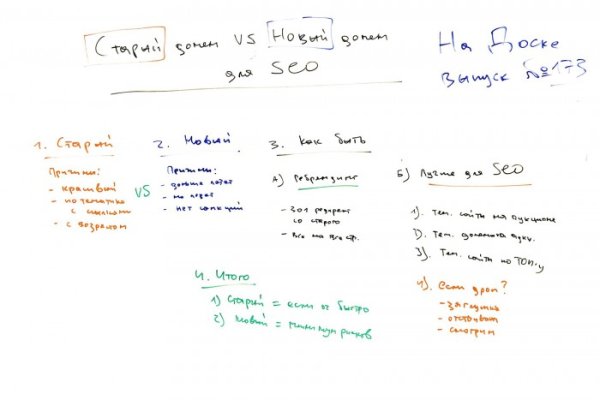 Старый домен VS Новый домен
для SEO
На Доске
выпуск №173
1. Старый
Причины:
- красивый
- по тематике
с ссылками
- с возрастом
VS
2. Новый
Причины:
- дольше
- не
- нет санкций
3. Как быть
А) Ребрендинг
- 301 редирект
со старого
- Все на все стр.
Б) Лучше для SEO
1). Тем. сайты на аукционе
2). Тем. домены аукц.
3). Тем. сайты по ТОП-у
4). если дроп?
- заглушка
- отстойник
- смотрим
4. Итого
1) Старый = если оч быстро
2) Новый = минимум рисков